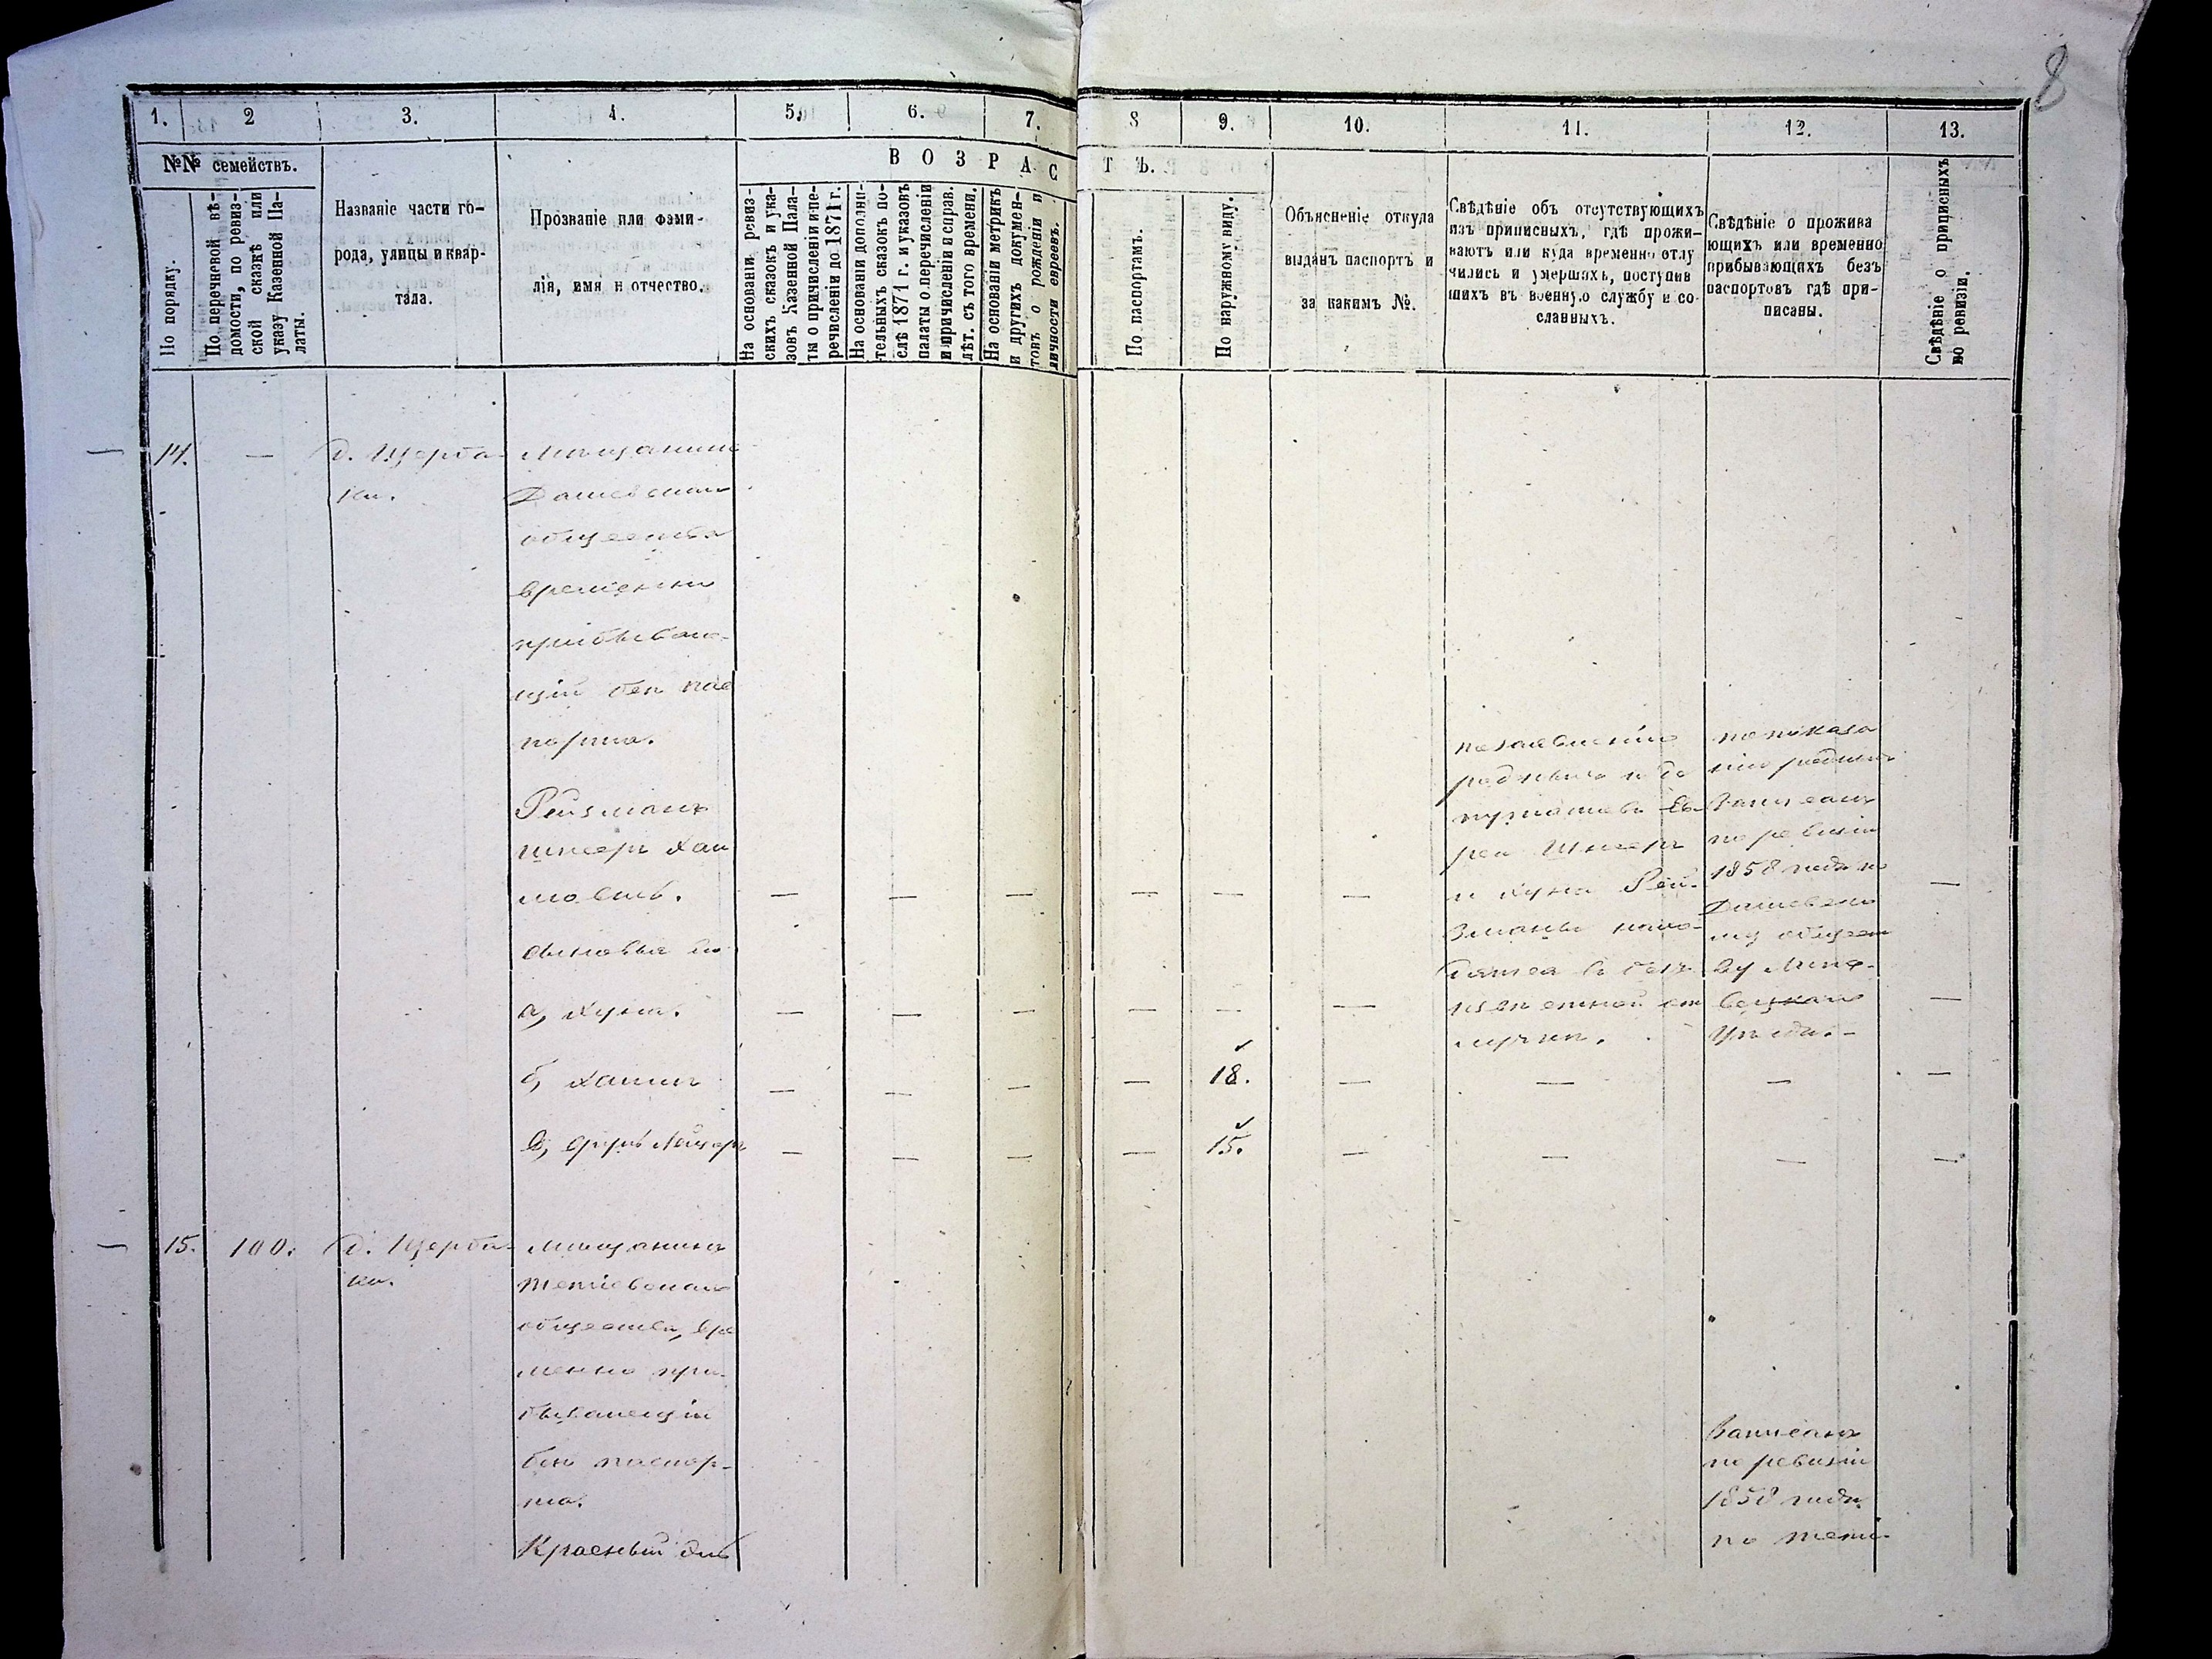 8
1. 2 3. 4. 5. 6. 7. 8 9. 10. 11. 12. 13.
№№ семействъ.
По порядку.
По перечневой вѣ-
домости, по ревиз-
ской сказкѣ или
указу Казенной Па-
латы.
Названіе части го-
рода, улицы и квар-
тала.
Прозваніе или фами-
лія, имя и отчество.
ВОЗРАСТЪ.
На основаніи ревиз-
скихъ сказокъ и ука-
зовъ Казенной Пала-
ты о причисленіи и пе-
речисленіи до 1871 г.
На основаніи дополни-
тельныхъ сказокъ по-
слѣ 1871 г. и указовъ
палаты о перечисленіи
и причисленіи и справ.
лѣт. съ того времени.
На основаніи метрикъ
и другихъ докумен-
товъ о рожденіи и
личности евреевъ.
По паспортамъ.
По наружному виду.
Объясненіе откуда
выданъ паспортъ и
за какимъ №.
Свѣдѣніе объ отсутствующихъ
изъ приписныхъ, гдѣ прожи-
ваютъ или куда временно отлу
чились и умершихъ, поступив
шихъ въ военную службу и со-
сланныхъ.
Свѣдѣніе о прожива
ющихъ или временно
прибывающихъ безъ
паспортовъ гдѣ при-
писаны.
Свѣдѣніе о приписныхъ
по ревизіи.
14. — д. Щерба-
ки.
Мѣщанинъ
Дашевскаго
общества
временно
прибываю-
щій безъ пас
порта.
Рейзманъ
Шмеръ Хаи
мовичъ. — — — — — — —
сыновья его
а, Хуна. — — — — — — —
б, Хаимъ — — — — 18. — — — —
в, Лейзеръ — — — — 15. — — — —
по заявленію
родныхъ и де
путатовъ Ев-
реи Шмеръ
и Хуна Рей-
зманы нахо-
дятся в без-
извѣстной от
лучкѣ.
по показа
нію родныхъ
Записанъ
по ревизіи
1858 года по
Дашевско
му общест
ву Липо-
вецкаго
Уѣзда. —
15. 100. д. Щерба-
ки.
Мѣщанинъ
Тетіевскаго
общества, вре
менно при-
бывающій
безъ паспор-
та.
Красный
Записанъ
по ревизіи
1858 года
по Тетіе-